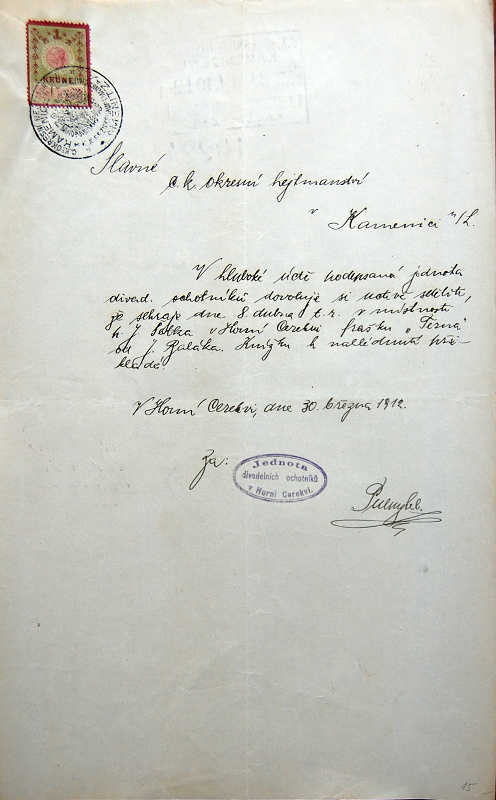 1
KRUNE
Slavné
c. k. okresní hejtmanství
v
Kamenici n/L.
V hluboké úctě podepsaná jednota
divad. ochotníků dovoluje si uctivě sděliti,
že sehraje dne 8. dubna t. r. v místnosti
p. J. v Horní Cerekvi frašku "Terno"
od J. Knížku k nahlédnutí při-
kládá
V Horní Cerekvi, dne 30. března 1912.
Za:
Jednota
divadelních ochotníků
v Horní Cerekvi.
15